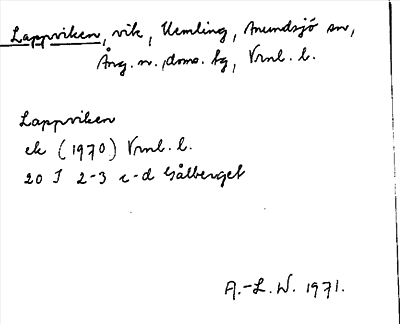 Lappviken, vik, Kemling, Anundsjö sn,
Ång. n., doms. bg, Vrnl. l.
Lappviken
ek (1970) Vrnl. l.
20 I 2-3 c-d Gålberget
A.-L. W. 1971.